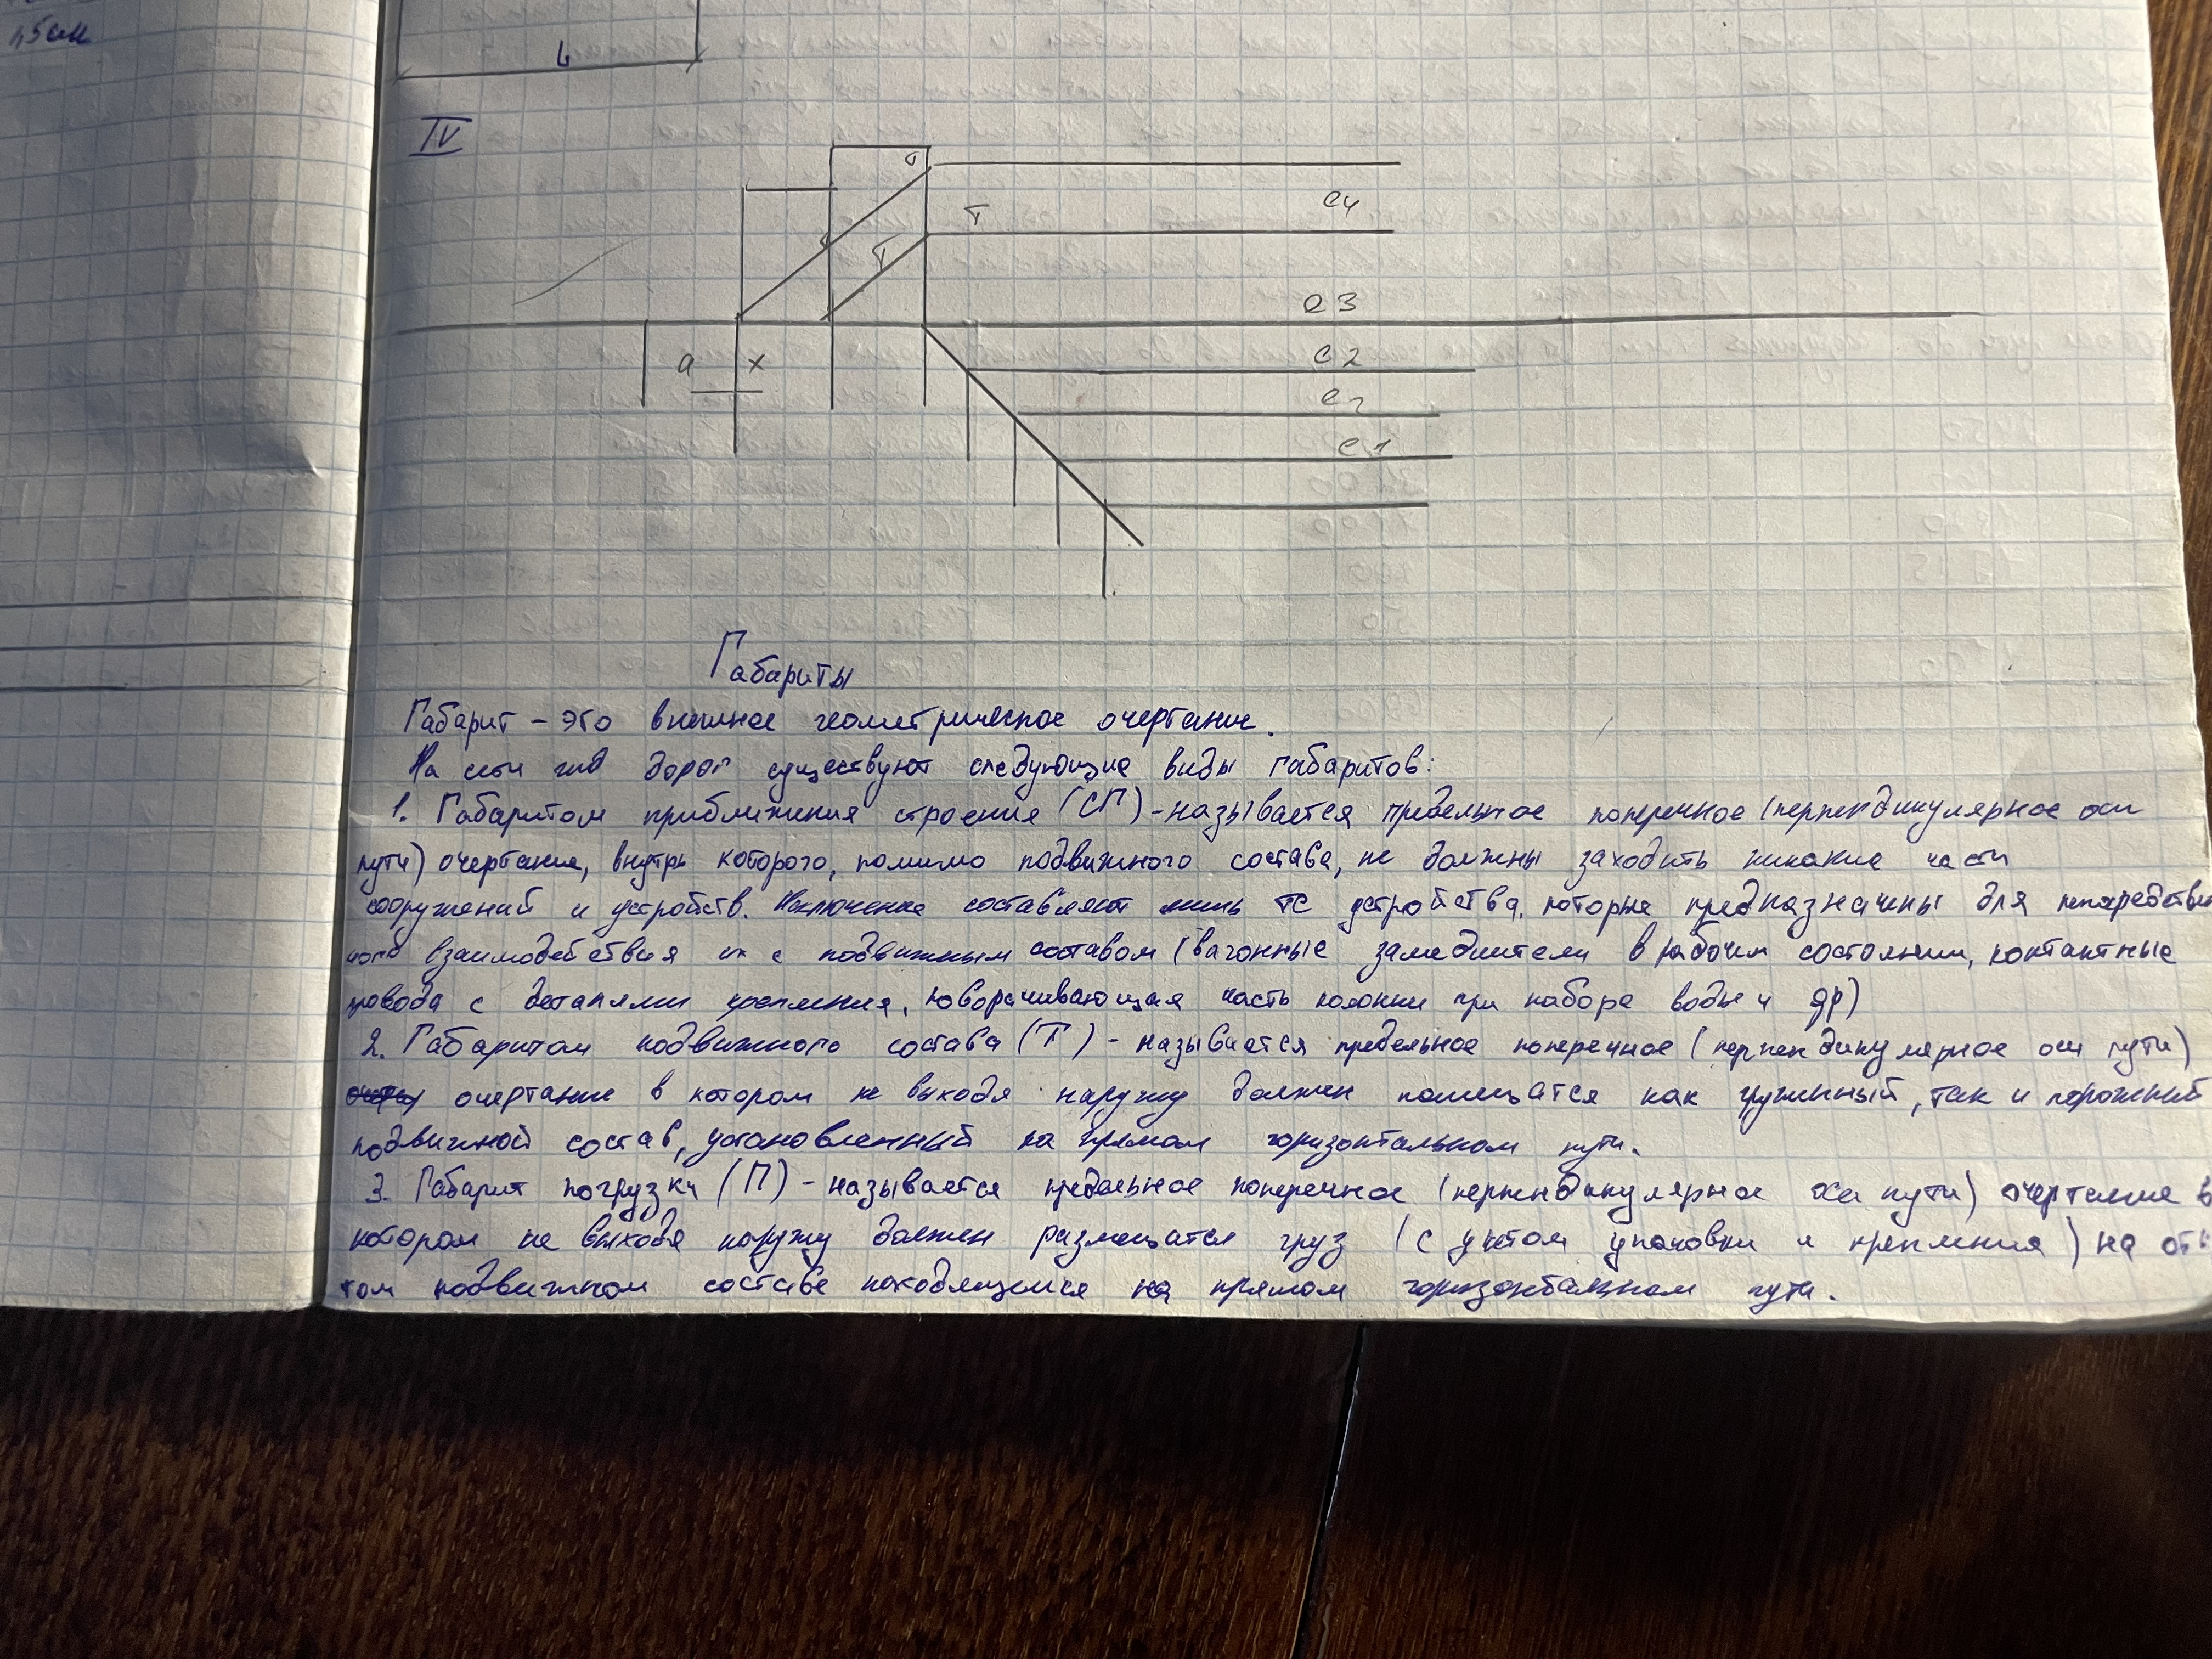 45см
L
IV
T
e4
T
e3
a x
e2
e2
e1
Габариты
Габарит - это внешнее геометрическое очертание.
На сети жд дорог существуют следующие виды габаритов:
1. Габаритом приближения строения (СП) - называется предельное поперечное (перпендикулярное оси
пути) очертание, внутрь которого, помимо подвижного состава, не должны заходить никакие части
сооружений и устройств. Исключение составляют лишь те устройства, которые предназначены для непоредствен
ного взаимодействия их с подвижным составом (вагонные замедлители в рабочем состоянии, контактные
провода с деталями крепления, поворачивающаяся часть колонки при наборе воды и др)
2. Габаритом подвижного состава (Т) - называется предельное поперечное (перпендикулярное оси пути)
очертание в котором не выходя наружу должен помещатся как груженный, так и порожний
подвижной состав, установленный на прямом горизонтальном пути.
3. Габарит погрузки (П) - называется предельное поперечное (перпендикулярное оси пути) очертание в
котором не выходя наружу должен размещатся груз (с учетом упаковки и крепления) на отк
том подвижном составе находящемся на прямом горизонтальном пути.